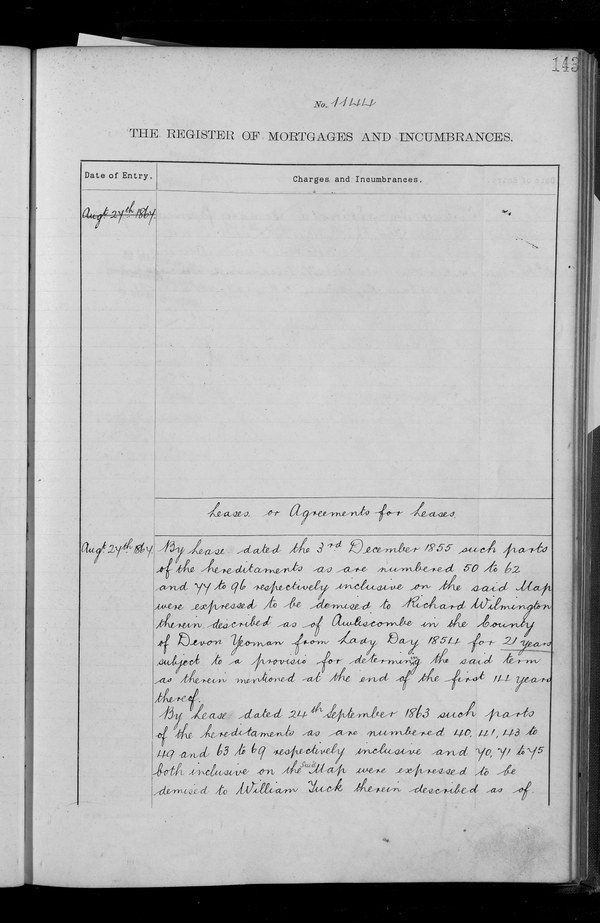 143
No. 1144
THE REGISTER OF MORTGAGES AND INCUMBRANCES.
Date of Entry. Charges and Incumbrances.
Augt 27th 1864.
Leases or Agreements for Leases.
Augt 27th 1864 By Lease dated the 3rd December 1855 such parts
of the hereditaments as are numbered 50 to 62
and 77 to 96 respectively inclusive on the said Map
were expressed to be demised to Richard Wilmington
therein described as of Awliscombe in the County
of Devon Yeoman from Lady Day 1854 for 21 years
subject to a provisio for determining the said term
as therein mentioned at the end of the first 14 years
thereof.
By Lease dated 24th September 1863 such parts
of the hereditaments as are numbered 40. 41, 43 to
49 and 63 to 69 respectively inclusive and 70, 71 to 75
both inclusive on the said Map were expressed to be
demised to William Tuck therein described as of